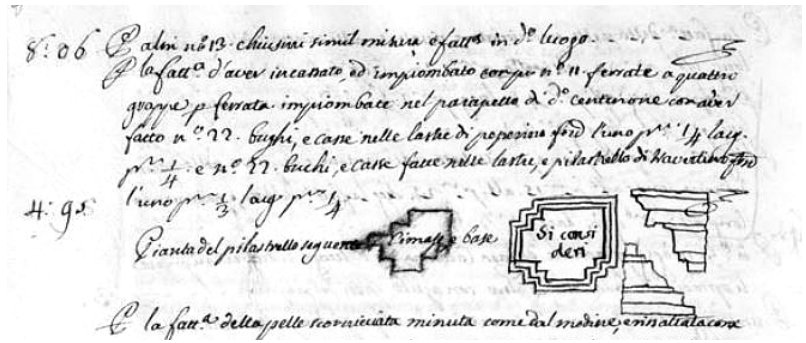 8: 06 P altri nº 13. chiusini simil misura e fattº in dº luogo
P la fattª d'aver incassato, ed impiombato corpi nº 11 ferrate a quattro
grappe p ferrata impiombate nel parapetto di dº centinone con aver
fatto nº 22. bughi, e casse nelle lastre di peperino fond l'uno pmº 1/4 larg.
pmº 1/4 e nº 22. buchi, e casse fatte nelle lastre, e pilastrello di travertino fond
4: 95 l'uno pmº 1/3 larg pmº 1/4
Pianta del pilastrello seguente Cimase e base
Si consi
deri
P la fattª della pelle scorniciata minuta come dal modine,